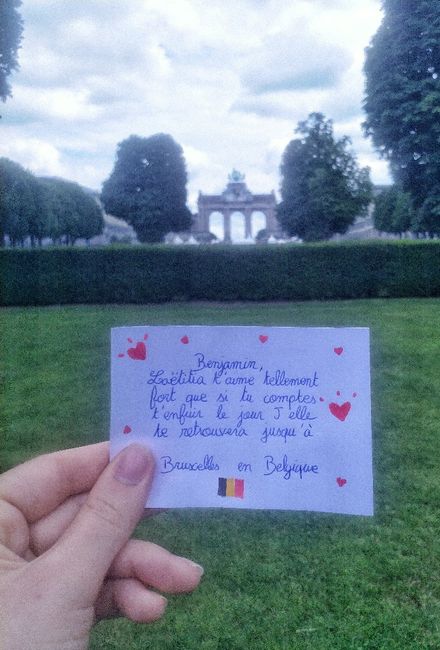 Benjamin,
Laëtitia t'aime tellement
fort que si tu comptes
t'enfuir le jour J elle
te retrouvera jusqu'à
Bruxelles en Belgique